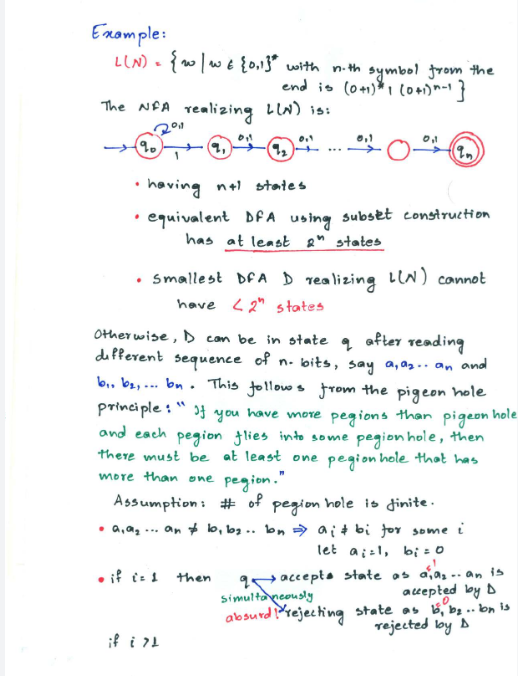 Example:
L(N) = { w | w ∈ {0,1}* with n-th symbol from the
end is (0+1)* 1 (0+1)ⁿ⁻¹ }
The NFA realizing L(N) is:
0,1
q₀ 1 q₁ 0,1 q₂ 0,1 ... 0,1 0,1 qₙ
• having n+1 states
• equivalent DFA using subset construction
has at least 2ⁿ states
• smallest DFA D realizing L(N) cannot
have < 2ⁿ states
Otherwise, D can be in state q after reading
different sequence of n-bits, say a₁a₂..aₙ and
b₁, b₂, ... bₙ. This follows from the pigeon hole
principle: "If you have more pegions than pigeon hole
and each pegion flies into some pegion hole, then
there must be at least one pegion hole that has
more than one pegion."
Assumption: # of pegion hole is finite.
• a₁a₂ ... aₙ ≠ b₁b₂ .. bₙ ⇒ aᵢ ≠ bᵢ for some i
let aᵢ=1, bᵢ=0
• if i=1 then q accepts state as a₁a₂..aₙ is
accepted by D
1
simultaneously
absurd! rejecting state as b₁b₂..bₙ is
0
rejected by D
if i>1